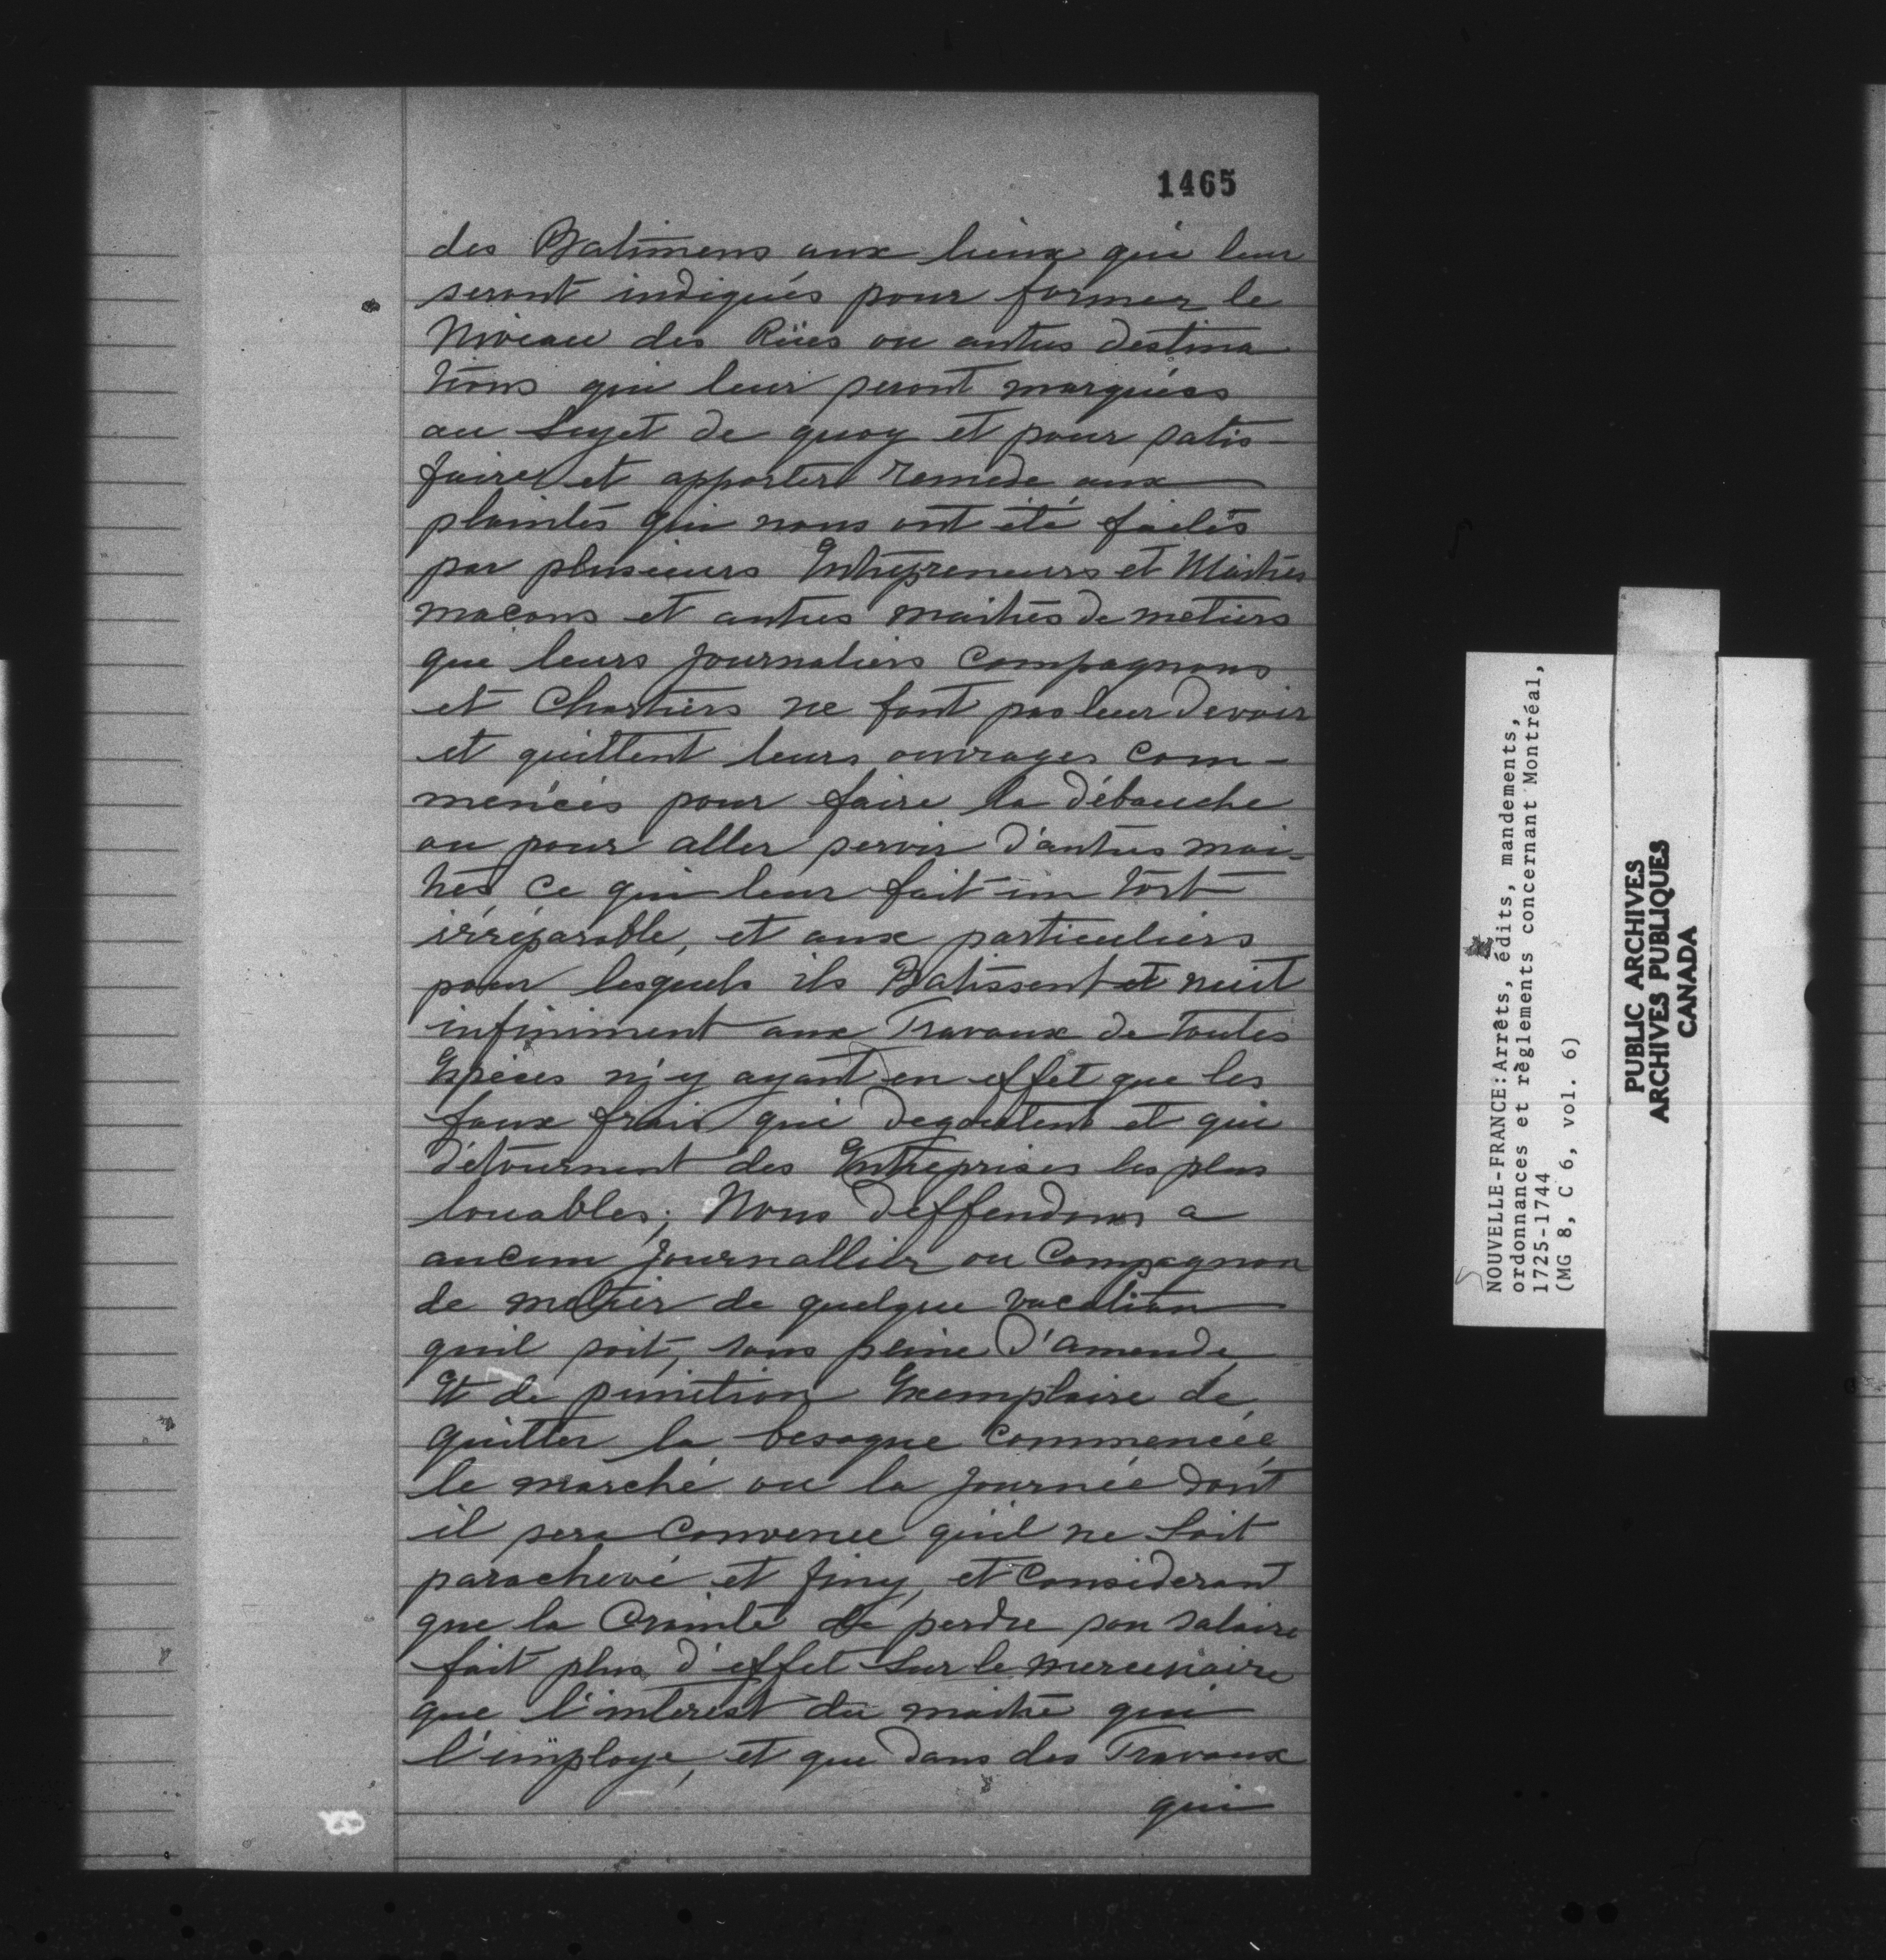 1465
des Batimens aux lieux qui leur
seront indiqués pour former le
Niveau des Rües ou autres destina
tions qui leur seront marquées
au Sujet de quoy et pour satis-
faire et apporter Remede aux
plaintes qui nous ont été faites
par plusieurs Entrepreneurs et Maitres
macons et autres maitres de metiers
que leurs Journaliers Compagnons
et Chartiers ne font pas leur devoir
et quittent leurs ouvrages com-
mencés pour faire la débauche
ou pour aller servir d'autres mai-
tres, Ce qui leur fait un tort
irréparable, et aux particuliers
pour lesquels ils Batissent et nuit
infiniment aux Travaux de toutes
Espèces n'y ayant en effet que les
faux frais qui degoutent et qui
détournent des Entreprises les plus
louables; Nous deffendons a
aucun Journallier ou Compagnon
de metier de quelque vacation
quil soit, sous peine d'amende,
Et de punition Exemplaire de
quitter la besogne Commencée,
le marché ou la Journée dont
il sera Convenu qu'il ne soit
parachevé et finy, et Considerant
que la Crainte de perdre son salaire
fait plus d'effet sur le mercenaire
que l'interest du maitre qui
l'employe, et que dans des Travaux
qui
NOUVELLE-FRANCE:Arrêts, édits, mandements,
ordonnances et règlements concernant Montréal,
1725-1744
(MG 8, C 6, vol. 6)
PUBLIC ARCHIVES
ARCHIVES PUBLIQUES
CANADA